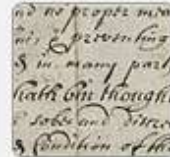 no proper mea
preventing
& in many part
hath bin though
sober and discre
& Condition of the